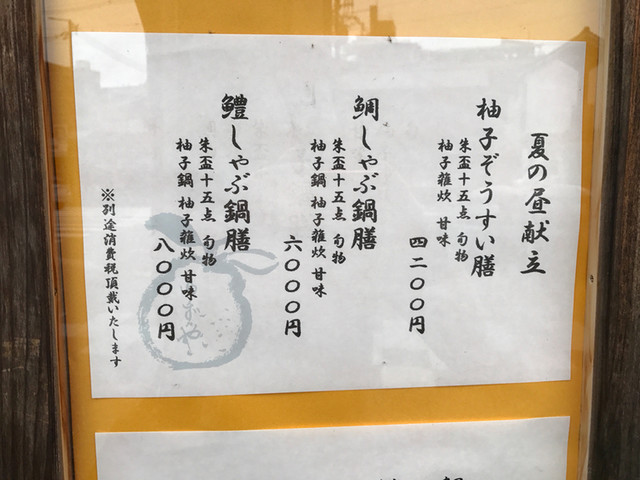 夏の昼献立
柚子ぞうすい膳
朱盃十五点 旬物
柚子雑炊 甘味
四二〇〇円
鯛しゃぶ鍋膳
朱盃十五点 旬物
柚子鍋 柚子雑炊 甘味
六〇〇〇円
鱧しゃぶ鍋膳
朱盃十五点 旬物
柚子鍋 柚子雑炊 甘味
八〇〇〇円
※別途消費税頂戴いたします